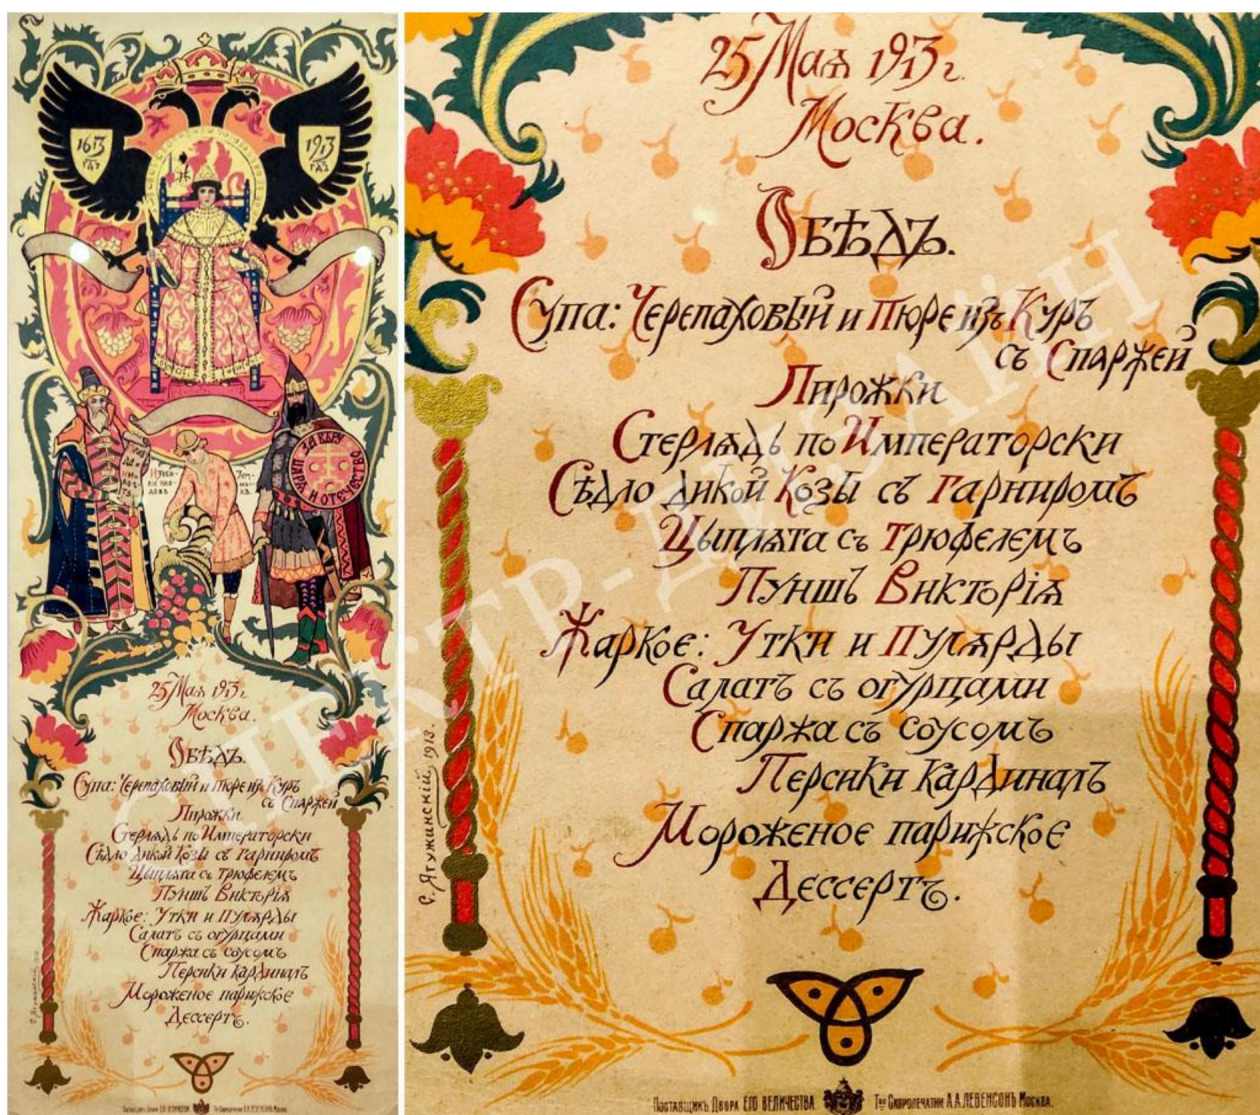 1613
годъ
1913
годъ
ЗА ВѢРУ
ЦАРЯ
И ОТЕЧЕСТВО
25 Мая 1913 г.
Москва.
Обѣдъ.
Супа: Черепаховый и Пюре изъ Куръ
съ Спаржей
Пирожки
Стерлядь по Императорски
Сѣдло дикой Козы съ гарниромъ
Цыплята съ трюфелемъ
Пуншъ Викторія
Жаркое: Утки и Пулярды
Салатъ съ огурцами
Спаржа съ соусомъ
Персики кардиналъ
Мороженое парижское
Дессертъ.
25 Мая 1913 г.
Москва.
Обѣдъ.
Супа: Черепаховый и Пюре изъ Куръ
съ Спаржей
Пирожки
Стерлядь по Императорски
Сѣдло дикой Козы съ гарниромъ
Цыплята съ трюфелемъ
Пуншъ Викторія
Жаркое: Утки и Пулярды
Салатъ съ огурцами
Спаржа съ соусомъ
Персики кардиналъ
Мороженое парижское
Дессертъ.
С. Ягужинскій 1913.
Поставщикъ Двора ЕГО ВЕЛИЧЕСТВА Тво Скоропечатни А.А.ЛЕВЕНСОНЪ Москва.